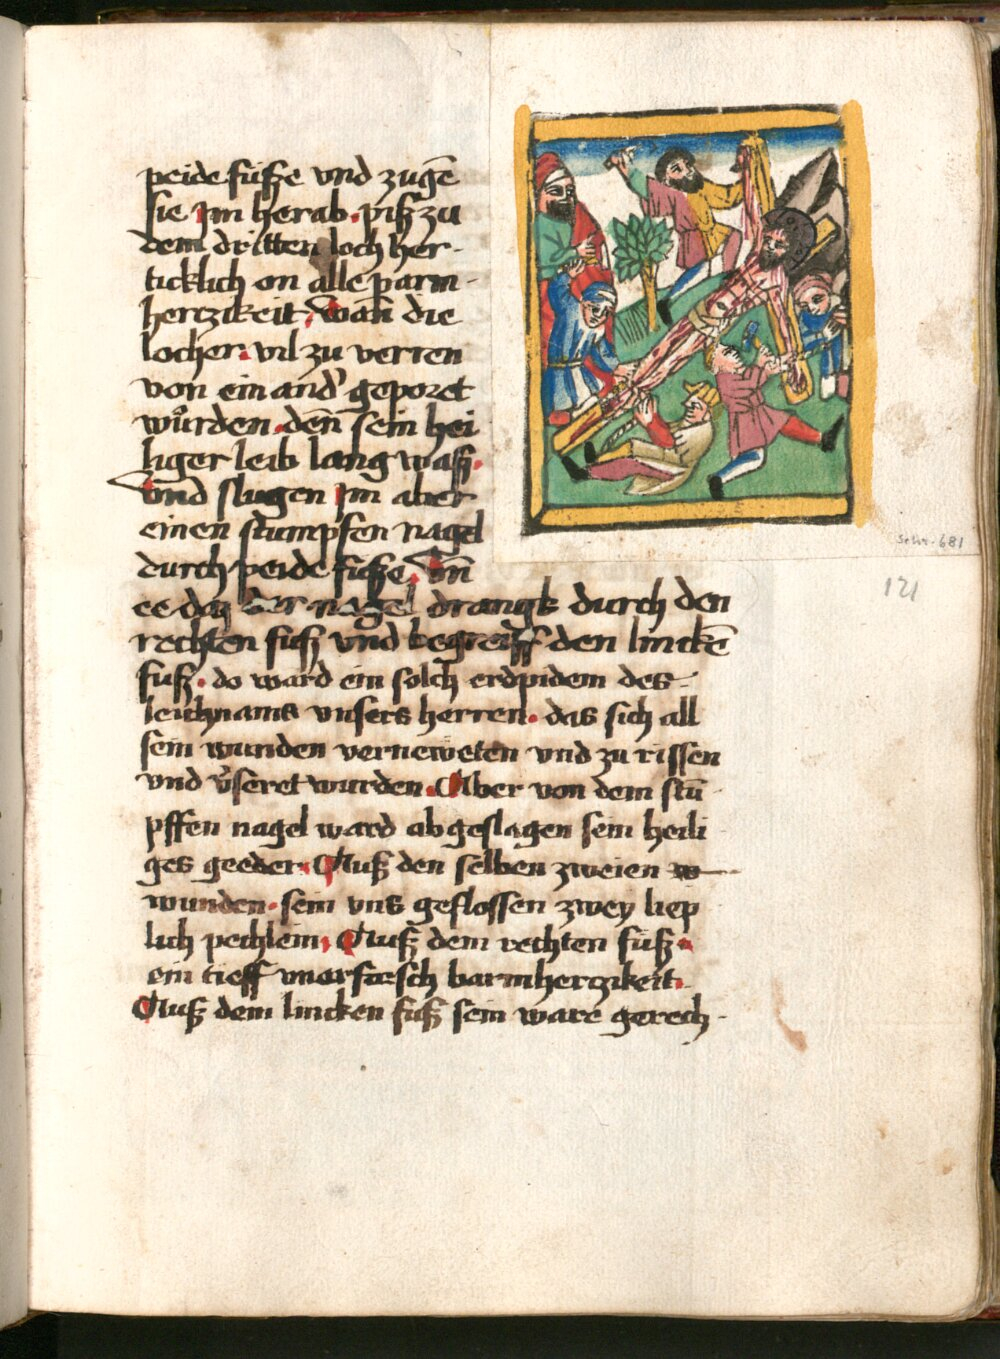 peide füsse vnd zugē
sie jm herab. pisz zu
dem dritten loch her-
ticklich on alle parm-
hertzikeit, wan̄ die
locher. vil zu verren
von ein and' geporet
wůrden. den̄ sein hei
liger leib lang wasz.
Vnd slugen jm aber
einen stumpfen nagel
durch peide füsse. Vn̄
ee daz der nagel drangk durch den
rechten fusz vnd begreiff den linckē
fusz. do ward ein solch erdpidem des-
leichnams vnsers herren. das sich all
sein wunden verneweten vnd zu rissen
vnd v̄seret wurden. Aber von dem stū-
pffen nagel ward ab geslagen sein heili
ges geeder. Ausz den selben zweien
wunden. sein vns geflossen zwey liep
lich pechlein, Ausz dem rechten füsz.
ein tieff barmhertzikeit.
Ausz dem lincken fusz sein ware gerech-
Schr. 681
121